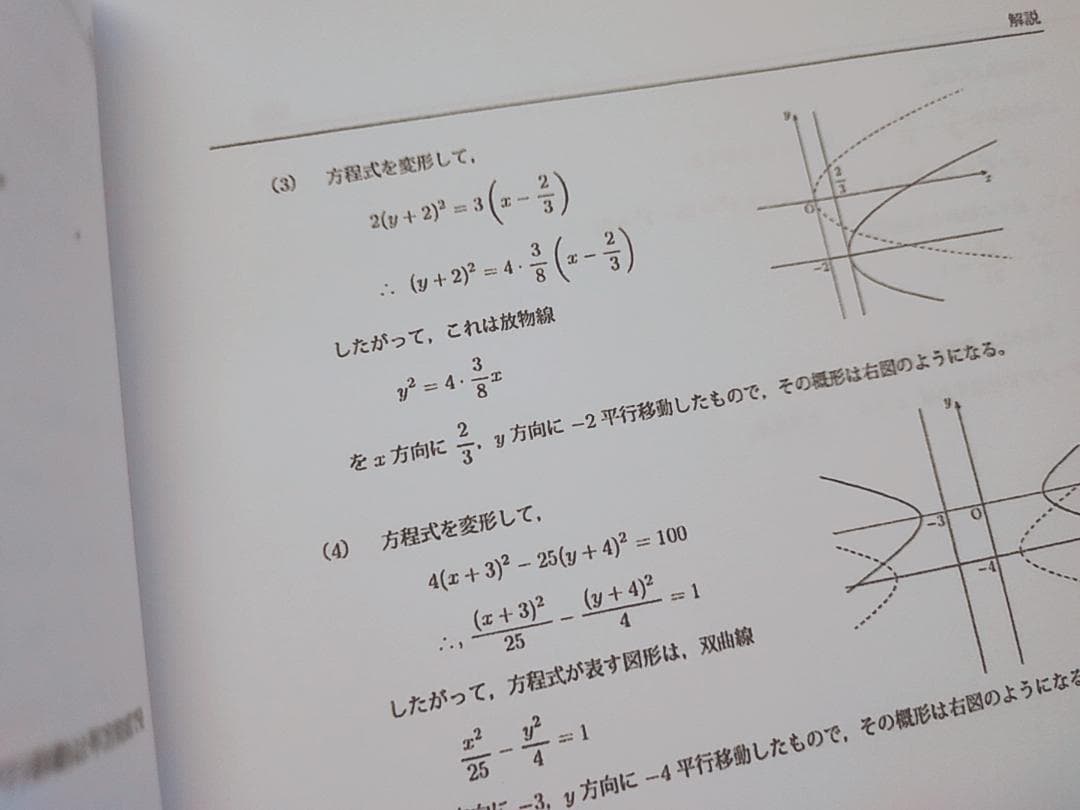 解説
(3) 方程式を変形して,
2(y+2)² = 3(x − 2/3)
∴ (y+2)² = 4 · 3/8 (x − 2/3)
したがって, これは放物線
y² = 4 · 3/8 x
を x 方向に 2/3, y 方向に −2 平行移動したもので, その概形は右図のようになる。
y
2/3
O
x
−2
(4) 方程式を変形して,
4(x+3)² − 25(y+4)² = 100
∴, (x+3)²/25 − (y+4)²/4 = 1
したがって, 方程式が表す図形は, 双曲線
x²/25 − y²/4 = 1
方向に −3, y 方向に −4 平行移動したもので, その概形は右図のようになる
y
−3
O
−4